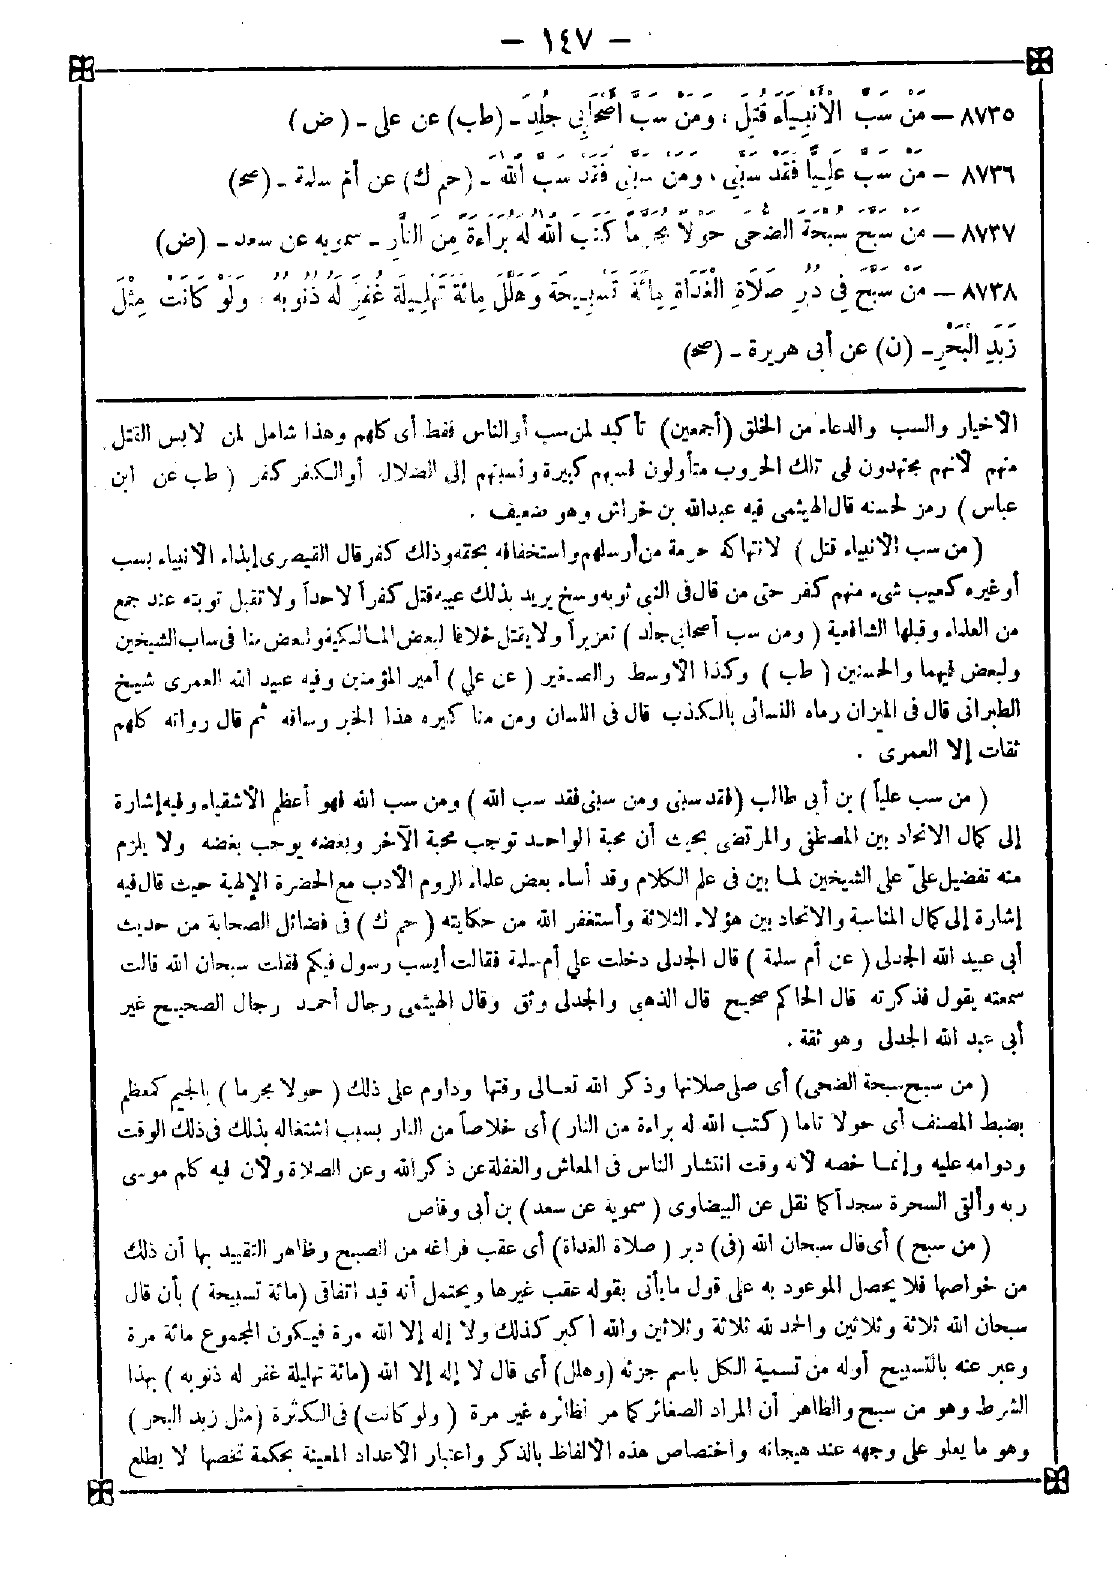 — ١٤٧ —
٨٧٣٥ — مَنْ سَبَّ الْأَنْبِيَاءَ قُتِلَ ، وَمَنْ سَبَّ أَصْحَابِي جُلِدَ - (طب) عن على - ( ض )
٨٧٣٦ — مَنْ سَبَّ عَلِيًّا فَقَدْ سَبَّنِي ، وَمَنْ سَبَّنِي فَقَدْ سَبَّ اللهَ - (حم ك) عن أم سلمة - (صح)
٨٧٣٧ — مَنْ سَبَّحَ سُبْحَةَ الضُّحَى حَوْلًا مُجَرَّمًا كَتَبَ اللهُ لَهُ بَرَاءَةً مِنَ النَّارِ - سمويه عن سعد - (ض)
٨٧٣٨ — مَنْ سَبَّحَ فِي دُبُرِ صَلَاةِ الْغَدَاةِ مِائَةَ تَسْبِيحَةٍ وَهَلَّلَ مِائَةَ تَهْلِيلَةٍ غُفِرَ لَهُ ذُنُوبُهُ ، وَلَوْ كَانَتْ مِثْلَ
زَبَدِ الْبَحْرِ - (ن) عن أبى هريرة - (صح)
الأخيار والسب والدعاء من الخلق (أجمعين) تأكيد لمن سب أو الناس فقط أى كلهم وهذا شامل لمن لابس القتل
منهم لأنهم مجتهدون فى تلك الحروب متأولون فسبهم كبيرة ونسبتهم إلى الضلال أو الكفر كفر ( طب عن ابن
عباس ) رمز لحسنه قال الهيثمى فيه عبدالله بن خراش وهو ضعيف .
( من سب الأنبياء قتل ) لانتهاكه حرمة من أرسلهم واستخفافه بحقه وذلك كفر قال القيصرى إيذاء الأنبياء بسب
أو غيره كعيب شىء منهم كفر حتى من قال فى النبى ثوبه وسخ يريد بذلك عيبه قتل كفراً لا حداً ولا تقبل توبته عند جمع
من العلماء وقبلها الشافعية ( ومن سب أصحابى جلد ) تعزيراً ولا يقتل خلافا لبعض المالكية ولبعض منا فى ساب الشيخين
ولبعض فيهما والحسنين ( طب ) وكذا الأوسط والصغير ( عن على ) أمير المؤمنين وفيه عبيد الله العمرى شيخ
الطبرانى قال فى الميزان رماه النسائى بالكذب قال فى اللسان ومن مناكيره هذا الخبر وساقه ثم قال رواته كلهم
ثقات إلا العمرى .
( من سب علياً ) بن أبى طالب (فقد سبنى ومن سبنى فقد سب الله ) ومن سب الله فهو أعظم الأشقياء وفيه إشارة
إلى كمال الاتحاد بين المصطفى والمرتضى بحيث أن محبة الواحد توجب محبة الآخر وبغضه يوجب بغضه ولا يلزم
منه تفضيل علىّ على الشيخين لما بين فى علم الكلام وقد أساء بعض علماء الروم الأدب مع الحضرة الإلهية حيث قال فيه
إشارة إلى كمال المناسبة والاتحاد بين هؤلاء الثلاثة وأستغفر الله من حكايته ( حم ك ) فى فضائل الصحابة من حديث
أبى عبيد الله الجدلى ( عن أم سلمة ) قال الجدلى دخلت على أم سلمة فقالت أيسب رسول فيكم فقلت سبحان الله قالت
سمعته يقول فذكرته قال الحاكم صحيح قال الذهبى والجدلى وثق وقال الهيثمى رجال أحمد رجال الصحيح غير
أبى عبد الله الجدلى وهو ثقة .
( من سبح سبحة الضحى) أى صلى صلاتها وذكر الله تعالى وقتها وداوم على ذلك ( حولا مجرما ) بالجيم كمعظم
بضبط المصنف أى حولا تاما ( كتب الله له براءة من النار ) أى خلاصاً من النار بسبب اشتغاله بذلك فى ذلك الوقت
ودوامه عليه وإنما خصه لأنه وقت انتشار الناس فى المعاش والغفلة عن ذكر الله وعن الصلاة ولأن فيه كلم موسى
ربه وألقى السحرة سجداً كما نقل عن البيضاوى ( سموية عن سعد ) بن أبى وقاص
( من سبح ) أى قال سبحان الله (فى) دبر ( صلاة الغداة) أى عقب فراغه من الصبح وظاهر التقييد بها أن ذلك
من خواصها فلا يحصل الموعود به على قول ما يأتى بقوله عقب غيرها ويحتمل أنه قيد اتفاقى (مائة تسبيحة ) بأن قال
سبحان الله ثلاثة وثلاثين والحمد لله ثلاثة وثلاثين والله أكبر كذلك ولا إله إلا الله مرة فيكون المجموع مائة مرة
وعبر عنه بالتسبيح أوله من تسمية الكل باسم جزئه (وهلل) أى قال لا إله إلا الله (مائة تهليلة غفر له ذنوبه ) بهذا
الشرط وهو من سبح والظاهر أن المراد الصغائر كما مر نظائره غير مرة ( ولو كانت) فى الكثرة (مثل زبد البحر )
وهو ما يعلو على وجهه عند هيجانه واختصاص هذه الألفاظ بالذكر واعتبار الأعداد المعينة بحكمة تخصها لا يطلع